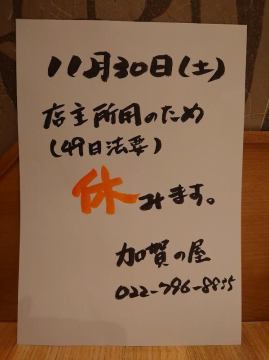 11月30日(土)
店主所用のため
(49日法要)
休みます。
加賀の屋
022-796-8815